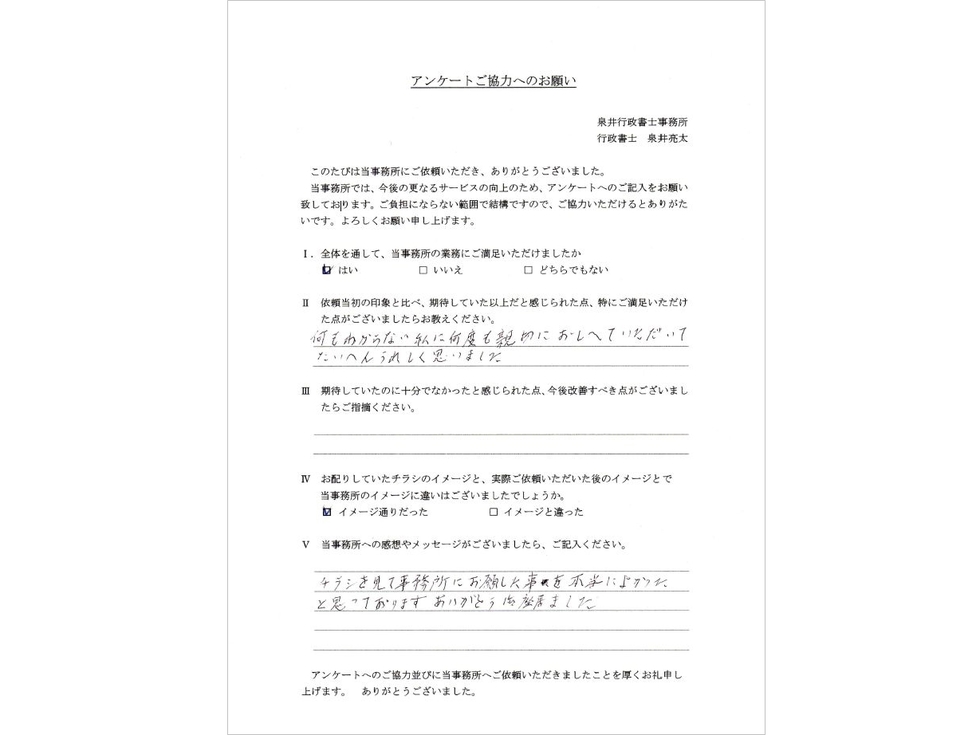 アンケートご協力へのお願い
泉井行政書士事務所
行政書士　泉井亮太
このたびは当事務所にご依頼いただき、ありがとうございました。
当事務所では、今後の更なるサービスの向上のため、アンケートへのご記入をお願い
致しております。ご負担にならない範囲で結構ですので、ご協力いただけるとありがた
いです。よろしくお願い申し上げます。
Ⅰ．全体を通して、当事務所の業務にご満足いただけましたか
☑ はい　□ いいえ　□ どちらでもない
Ⅱ　依頼当初の印象と比べ、期待していた以上だと感じられた点、特にご満足いただけ
た点がございましたらお教えください。
何もわからない私に何度も親切におしへていただいて
たいへんうれしく思いました
Ⅲ　期待していたのに十分でなかったと感じられた点、今後改善すべき点がございまし
たらご指摘ください。
Ⅳ　お配りしていたチラシのイメージと、実際ご依頼いただいた後のイメージとで
当事務所のイメージに違いはございましたでしょうか。
☑ イメージ通りだった　□ イメージと違った
Ⅴ　当事務所への感想やメッセージがございましたら、ご記入ください。
チラシを見て事務所にお願した事を本当によかつた
と思つております ありがとう御座居ました
アンケートへのご協力並びに当事務所へご依頼いただきましたことを厚くお礼申し
上げます。　ありがとうございました。